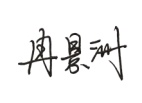 冉景洲